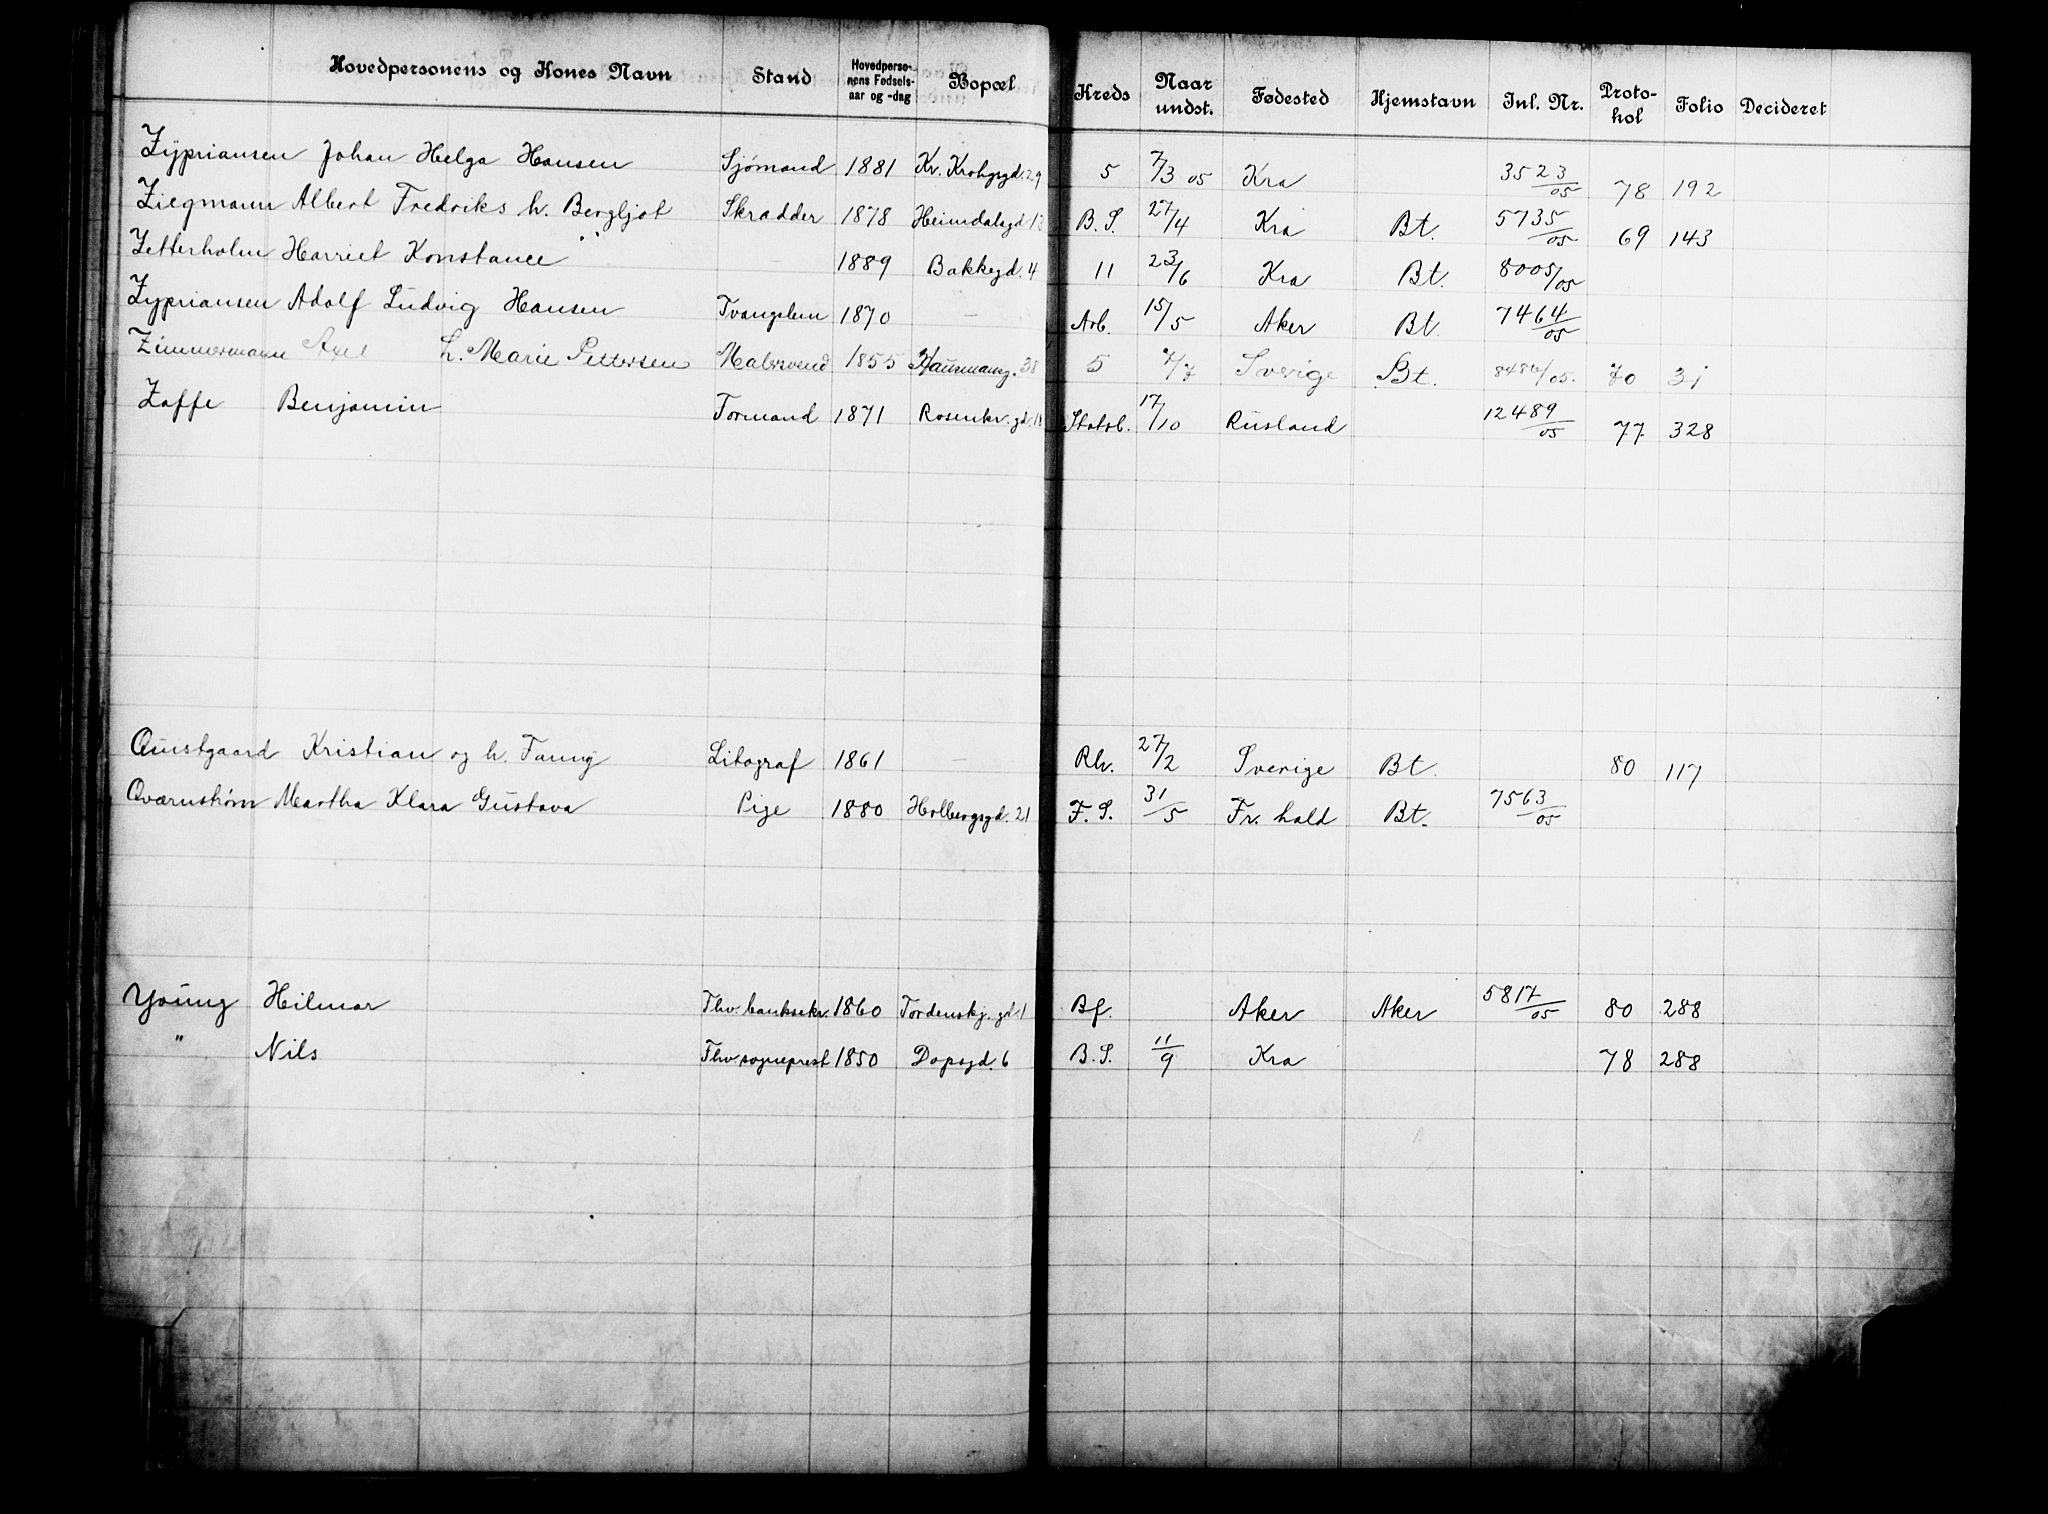 Hovedpersonens og Kones Navn Stand Hovedperso- nens Fødsels- aar og -dag Bopæl Kreds Naar undst. Fødested Hjemstavn Inl. Nr. Proto- kol Folio Decideret
Zypriansen Johan Helga Hansen Sjømand 1881 Kr. Krohgsgd. 29 5 7/3 05 Kra 3523/05 78 192
Ziegmann Albert Fredriks h. Bergljot Skrædder 1878 Heimdalsgd 13 B. S. 27/4 Kra Bt. 5735/05 69 143
Zetterholm Harriet Konstance 1889 Bakkegd. 4 11 23/6 Kra Bt. 8005/05
Zypriansen Adolf Ludvig Hansen Tvangslem 1870 — Arb. 15/5 Aker Bt. 7464/05
Zimmermann Axel h. Marie Pettersen Malersvend 1855 Hausmansg. 38 5 7/7 Sverige Bt. 8486/05. 70 31
Zaffe Benjamin Formand 1871 Rosenkr. gd. Statsb. 17/10 Rusland 12489/05 77 328
Qvistgaard Kristian og h. Fanny Litograf 1861 — Rh. 27/2 Sverige Bt. 80 117
Qværnstrøm Martha Klara Gustava Pige 1880 Holbergsgd. 21 F. S. 31/5 Fr. hald Bt. 7563/05
Young Hilmar Fhv. banksekr. 1860 Tordenskj. gd. 1 Bf. Aker Aker 5817/05 80 288
" Nils Fhv. sogneprest 1850 Dopsgd. 6 B. S. 11/9 Kra 78 288